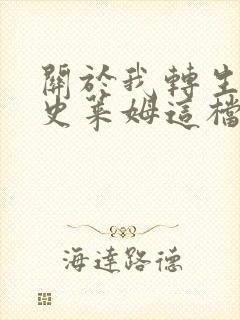 關於我轉生
史萊姆這檔
海達路德